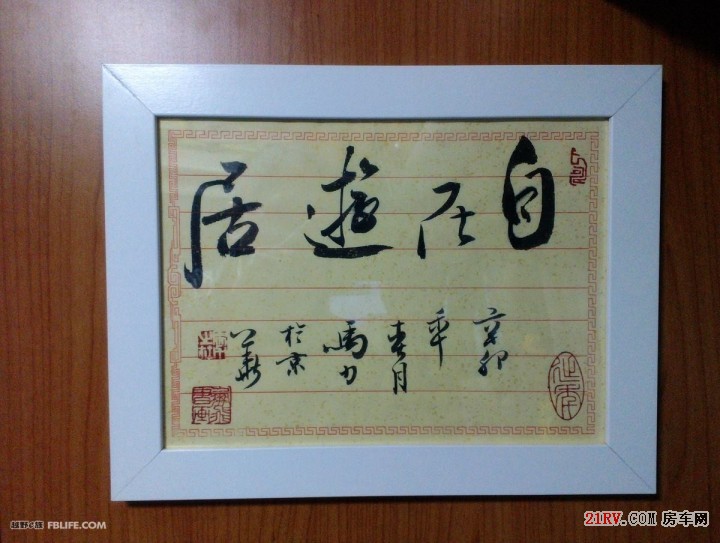 自在遊居
辛卯
年
春月
馬力
於京
越野e族 FBLIFE.COM
21RV.COM 房车网